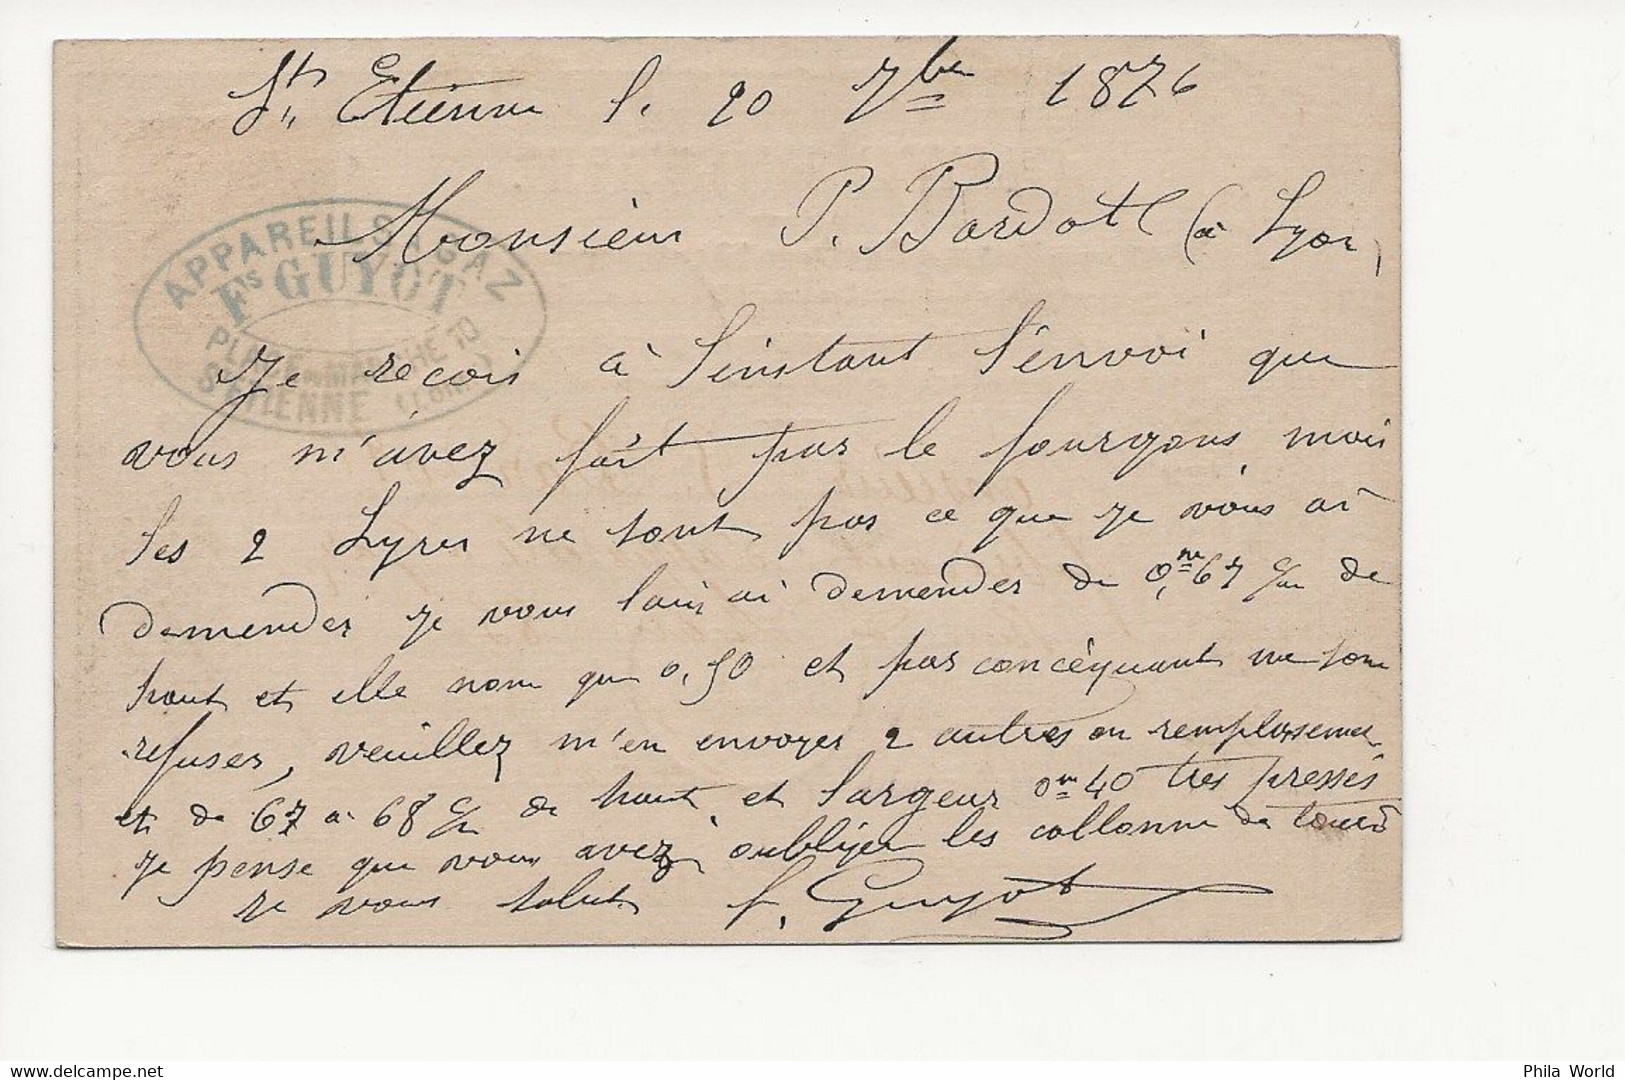 St Etienne l. 20 7bre 1876
APPAREILS A GAZ
Fs GUYOT
PLACE MARCHÉ 10
ST ETIENNE (LOIRE)
Monsieur P. Bardot (à Lyon)
Je recois à l'instant l'envoi que
vous m'avez fait par le fourgons, mais
les 2 Lyres ne sont pas ce que je vous ai
demender je vous lais ai demender de 0,m67 c/m de
haut et elle nom que 0,50 et par concéquant me som
refuser, veuillez m'en envoyer 2 autres en remplasemer
et de 67 a 68 c/m de haut et largeur 0m40 tres pressés
je pense que vous avez oublijer les collonne de
je vous salut f. Guyot
Phila World